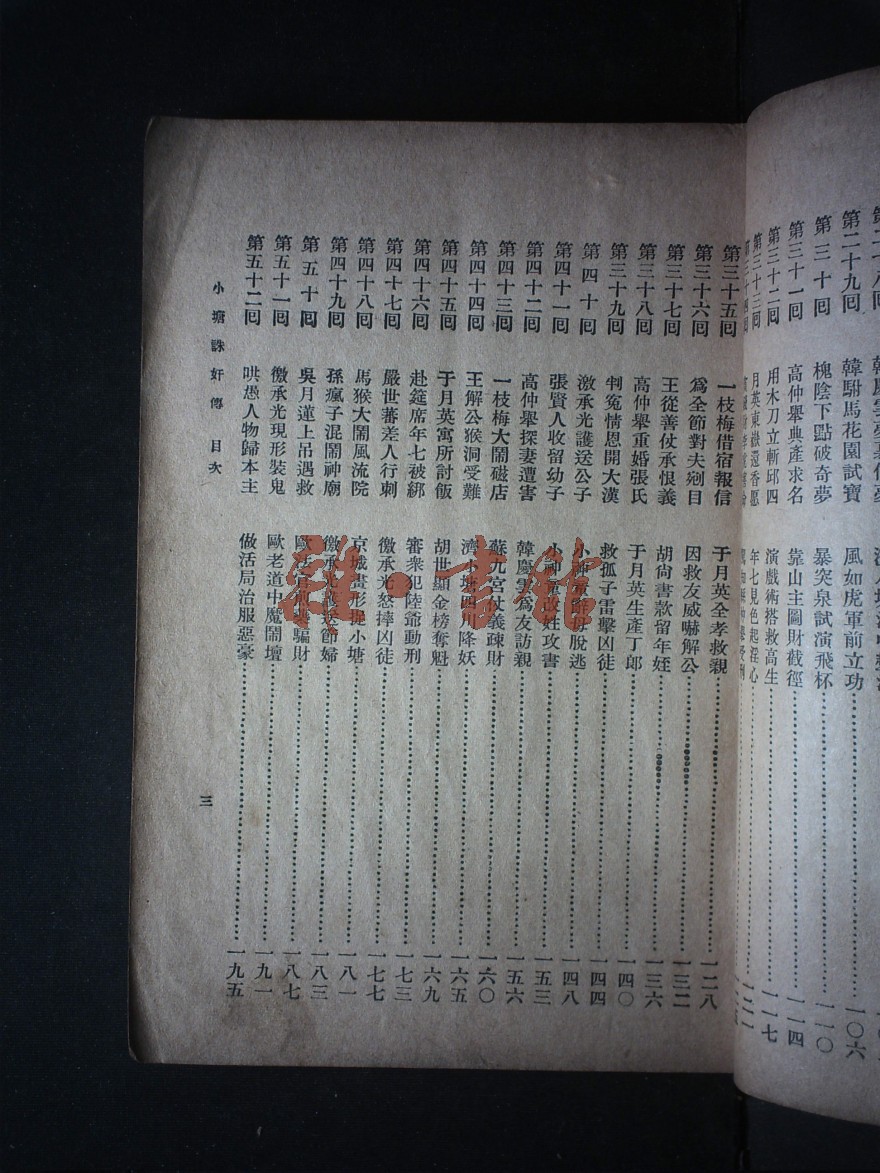 第二十九回 韓駙馬花園試寶 風如虎軍前立功 一〇六
第三十回 槐陰下點破奇夢 暴突泉試演飛杯 一一〇
第三十一回 高仲舉典產求名 靠山主圖財截徑 一一四
第三十二回 用木刀立斬邱四 演戲術搭救高生 一一七
第三十三回 月英東嶽還香愿 年七見色起淫心 一二一
第三十五回 一枝梅借宿報信 于月英全孝救親 一二八
第三十六回 爲全節對夫剜目 因救友威嚇解公 一三二
第三十七回 王從善仗承恨義 胡尙書款留年姪 一三六
第三十八回 高仲舉重婚張氏 于月英生產丁郞 一四〇
第三十九回 判冤情恩開大漢 救孤子雷擊凶徒 一四四
第四十回 激承光護送公子 小神童辭母脫逃 一四八
第四十一回 張賢人收留幼子 小神童改姓攻書 一五三
第四十二回 高仲舉探妻遭害 韓慶雲爲友訪親 一五六
第四十三回 一枝梅大鬧磁店 蘇九宮仗義疎財 一六〇
第四十四回 王解公猴洞受難 濟小塘四川降妖 一六五
第四十五回 于月英寓所討飯 胡世顯金榜奪魁 一六九
第四十六回 赴筵席年七被綁 審衆犯陸爺動刑 一七三
第四十七回 嚴世蕃差人行刺 徼承光怒摔凶徒 一七七
第四十八回 馬猴大鬧風流院 京城畫形捉小塘 一八一
第四十九回 孫瘋子混鬧神廟 徼承光護送節婦 一八三
第五十回 吳月蓮上吊遇救 騙財 一八七
第五十一回 徼承光現形裝鬼 歐老道中魔鬧壇 一九一
第五十二回 哄愚人物歸本主 做活局治服惡豪 一九五
小塘誅奸傳 目次
三
雜·書館